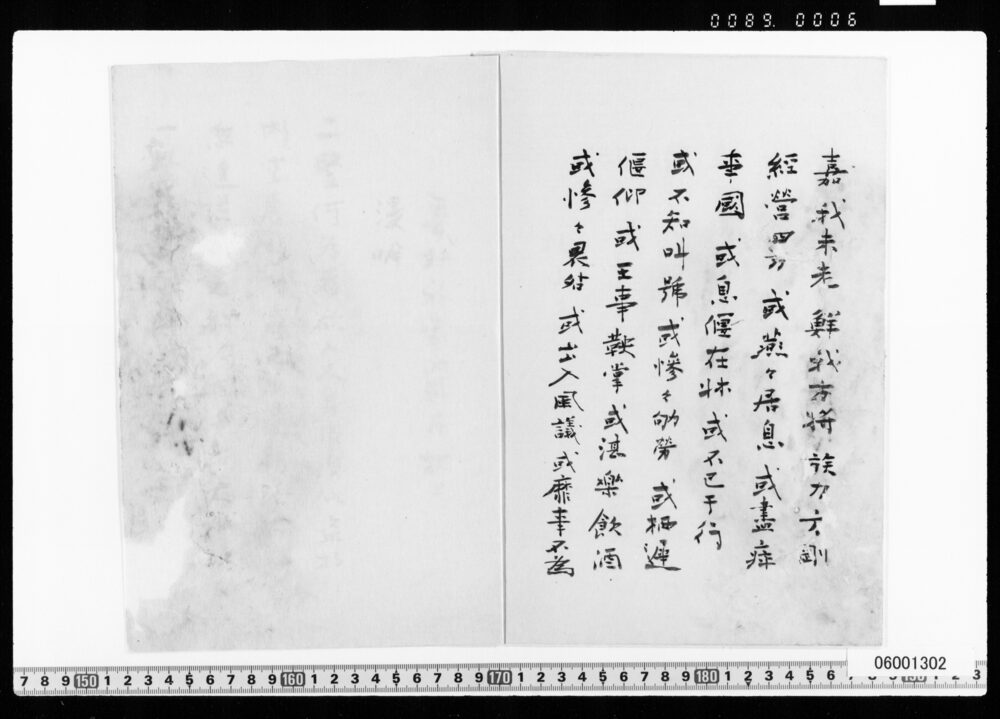 0089. 0006
嘉我未老鮮我方将旅力方剛
經營四方或燕々居息或盡瘁
事國或息偃在牀或不已于行
或不知叫號或慘々劬勞或栖遲
偃仰或王事鞅掌或湛樂飲酒
或慘々畏咎或出入風議或靡事不為
06001302
7 8 9 150 1 2 3 4 5 6 7 8 9 160 1 2 3 4 5 6 7 8 9 170 1 2 3 4 5 6 7 8 9 180 1 2 3 4 5 6 7 8 9 190 1 2 3